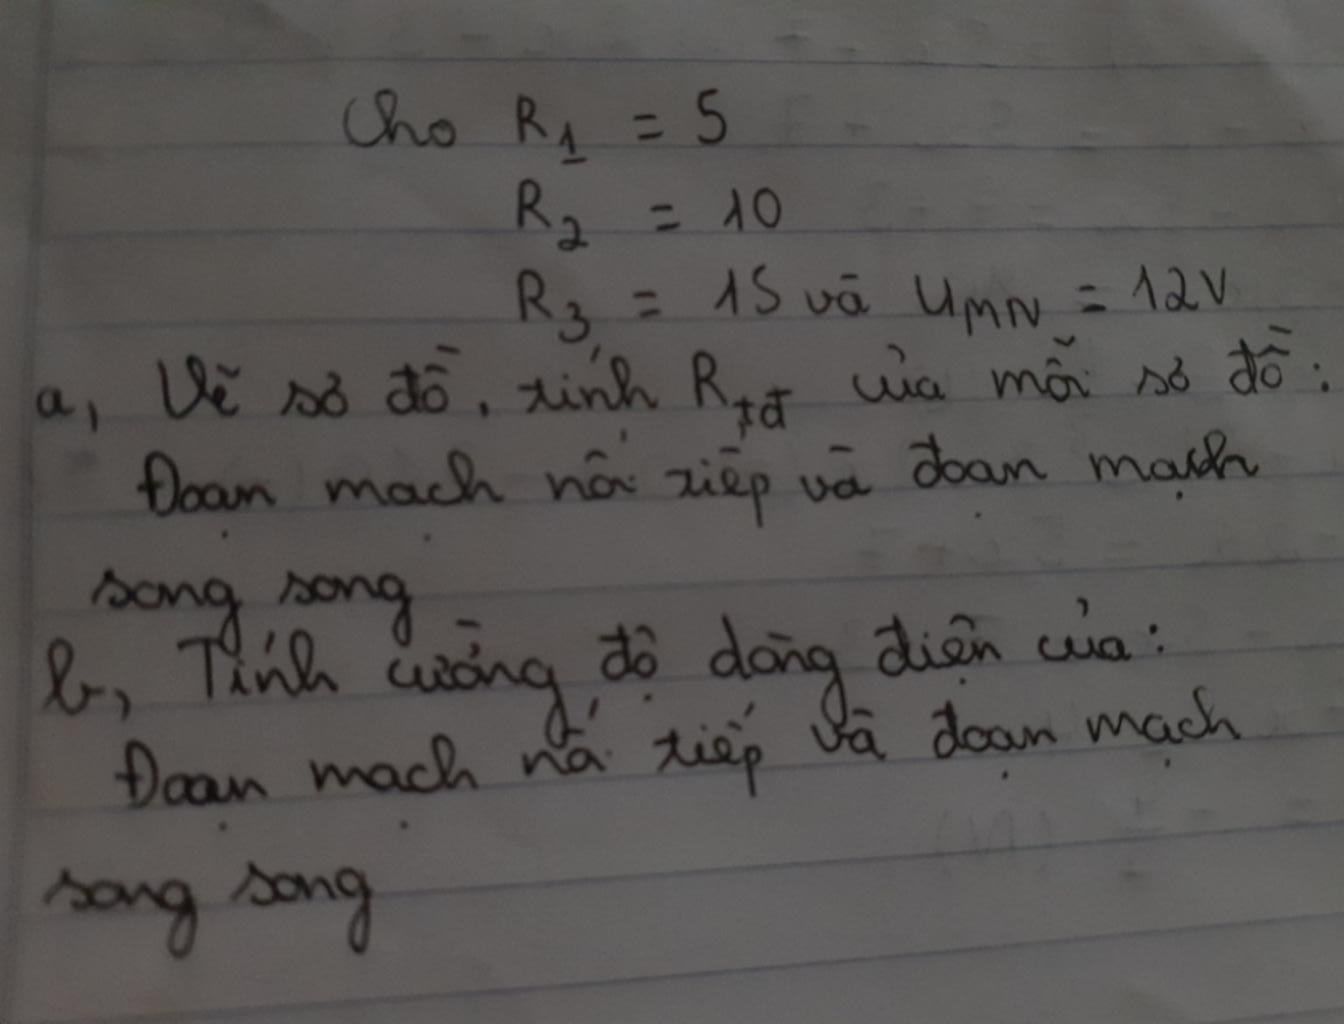 Cho R1 = 5
R2 = 10
R3 = 15 và UMN = 12V
a, Vẽ sơ đồ, tính Rtđ của mỗi sơ đồ:
Đoạn mạch nối tiếp và đoạn mạch
song song
b, Tính cường độ dòng điện của:
Đoạn mạch nối tiếp và đoạn mạch
song song